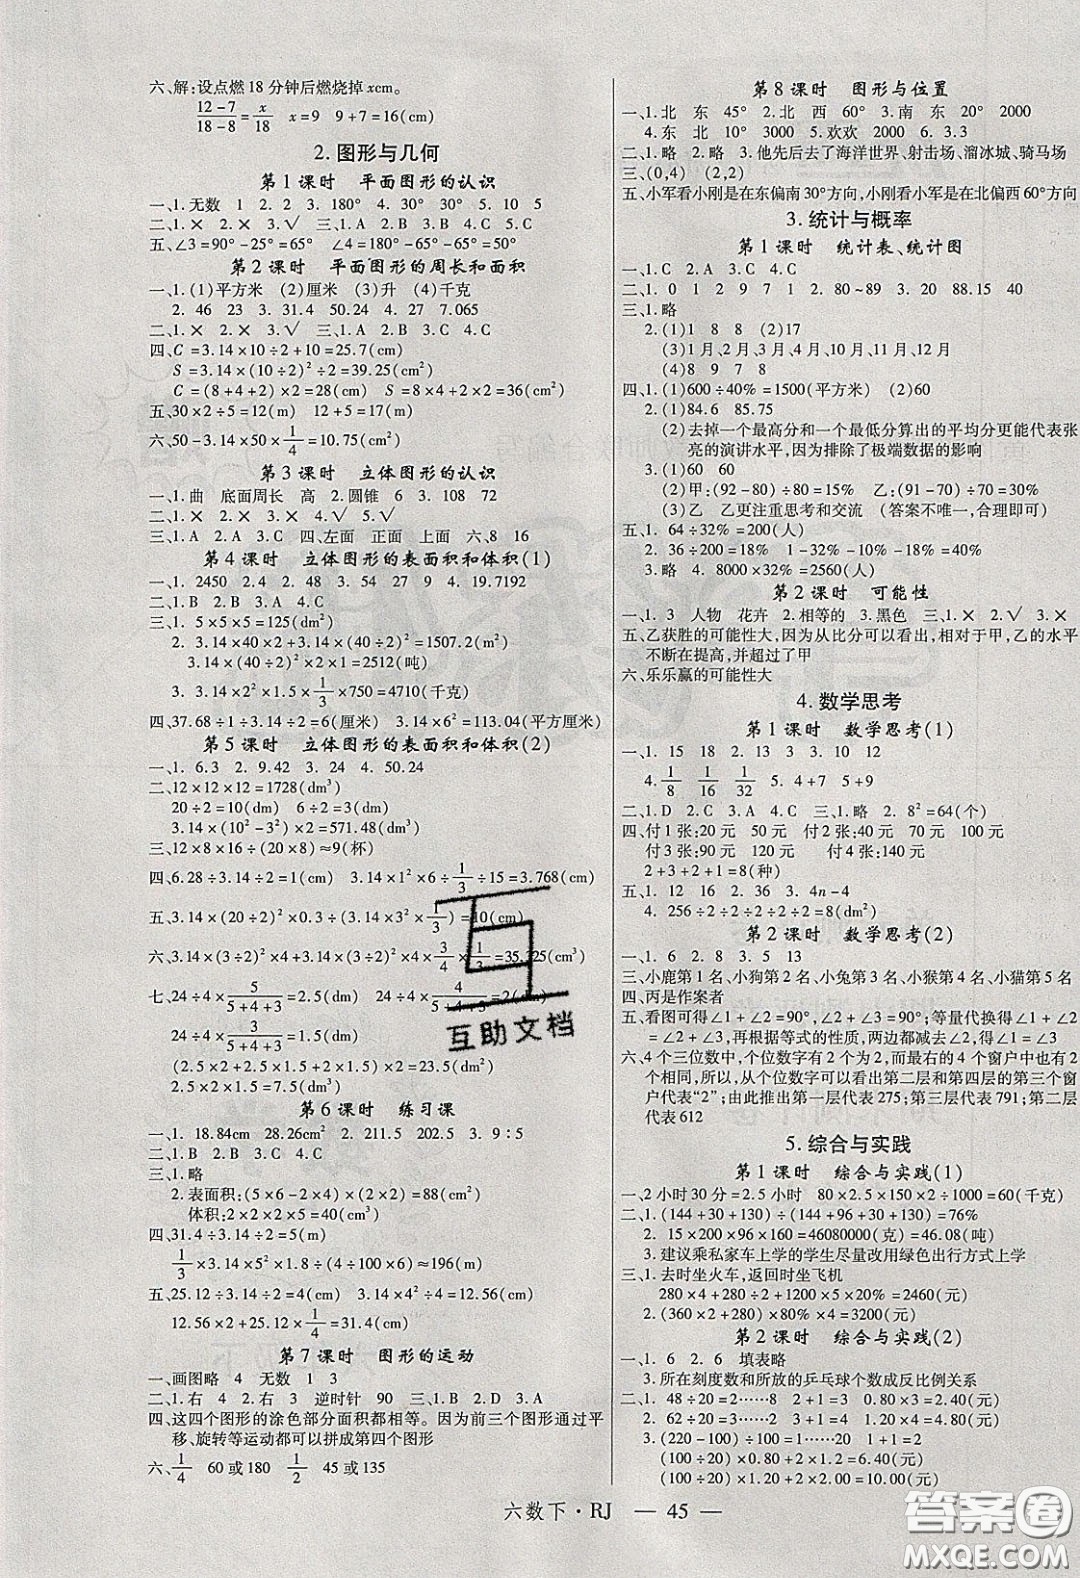 六、解:设点燃18分钟后燃烧掉xcm。
(12-7)/(18-8)=x/18 x=9 9+7=16(cm)
2.图形与几何
第1课时 平面图形的认识
一、1.无数 1 2 2.180° 4.30° 120° 30° 5.10 5
二、1.× 2.× 3.√ 三、1.A 2.B 3.A 4.C
五、∠3=90°-25°=65° ∠4=180°-65°=115°
第2课时 平面图形的周长和面积
一、1.(1)平方米 (2)厘米 (3)升 (4)千克
2.46 23 3.31.4 50.24 4.27 7.065
二、1.× 2.× 3.√ 三、1.A 2.B 3.B
四、C=3.14×10÷2+10=25.7(cm)
S=3.14×(10÷2)²÷2=39.25(cm²)
C=(8+4+2)×2=28(cm) S=8×4+2×2=36(cm²)
五、30×2÷5=12(m) 12+5=17(m)
六、50-3.14×50×1/4=10.75(cm²)
第3课时 立体图形的认识
一、1.曲 底面周长 高 2.圆锥 6 3.108 72
二、1.× 2.× 3.√ 4.√ 5.√
三、1.D 2.A 3.C 四、左面 正面 上面 六、8 16
第4课时 立体图形的表面积和体积(1)
一、1.2450 2.4 2.48 3.54 27 9 4.19.7192
二、1.C 2.D 3.A 4.B 5.C
三、1.5×5×5=125(dm³)
2.3.14×40×2+3.14×(40÷2)²=1507.2(m²)
3.14×(40÷2)²×2=2512(吨)
3.3.14×2²×1.5×1/3×750=4710(千克)
四、37.68÷3.14÷2=6(厘米) 3.14×6²=113.04(平方厘米)
第5课时 立体图形的表面积和体积(2)
一、1.6.3 2.9.42 3.24 4.50.24
二、12×12×12=1728(dm³)
20÷2=10(dm) 6÷2=3(dm)
3.14×(10²-3²)×2=571.48(dm³)
三、12×8×16÷(20×8)≈9(杯)
四、6.28÷3.14÷2=1(cm) 3.14×1²×6÷1/3÷15=3.768(cm)
五、3.14×(20÷2)²×0.3÷(3.14×3²×1/3)=10(cm)
六、3.14×(3÷2)²×4+3.14×(3÷2)²×4×3/4×1/3=35.325(cm³)
七、24÷4×5/(5+4+3)=2.5(cm) 24÷4×4/(5+4+3)=2(cm)
24÷4×3/(5+4+3)=1.5(cm)
(2.5×2+2.5×1.5+2×1.5)×2=23.5(cm²)
2.5×2×1.5=7.5(cm³)
第6课时 练习课
一、1.18.84cm 28.26cm² 2.211.5 202.5 3.9∶5
二、1.C 2.B 3.C 4.B
三、1.略
2.表面积:(5×6-2×4)×(2×2)=88(cm²)
体积:2×2×2×5=40(cm³)
四、31.4÷3.14÷2=5(m)
1/3×3.14×5²×1.5÷(4÷100÷5)≈196(m)
五、25.12÷3.14÷2=4(cm) 3.14×4÷2×2=12.56(cm)
12.56×2+12.56×2×1/4=31.4(cm)
第7课时 图形的运动
一、画图略 4 无数 1 3
二、1.右 4 2.右 3 逆时针 90 三、1.B 2.C 3.A
四、这四个图形的涂色部分面积都相等。因为前三个图形通过平
移、旋转等运动都可以拼成第四个图形
六、1/4 60或180 1/2 45或135
第8课时 图形与位置
一、1.北 东 45° 2.北 西 60° 3.南 东 20° 2000
4.东 北 10° 3000 5.欢欢 2000 6.3.3
二、1.略 2.略 3.他先后去了海洋世界、射击场、溜冰城、骑马场
三、(0,4) (2,2)
五、小军看小刚是在东偏南30°方向,小刚看小军是在北偏西60°方向
3.统计与概率
第1课时 统计表、统计图
一、1.C 2.A 3.C 4.C
二、1.0 1 2 9 7 1 2.80~89 3.20 88.15 40
三、1.略
2.(1)1 8 8 (2)17
(3)1月、2月、3月、4月、5月
(4)8 9 7 8
四、1.(1)600÷40%=1500(平方米) (2)60
2.(1)84.6 85.75
(2)去掉一个最高分和一个最低分算出的平均分更能代表张
亮的演讲水平,因为排除了极端数据的影响
3.(1)60 60
(2)甲:(92-80)÷80=15% 乙:(91-70)÷70=30%
(3)乙 乙更注重思考和交流 (答案不唯一,合理即可)
五、1.64÷32%=200(人)
2.36÷200=18% 1-32%-18%-34%=16%
3.略 4.8000×32%=2560(人)
第2课时 可能性
一、1.3 人物 花卉 2.相等的 3.黑色 三、1.× 2.√ 3.×
五、乙获胜的可能性大,因为从比分可以看出,相对于甲,乙的水平
不断在提高,并最近超过了甲
六、乐乐赢的可能性大
4.数学思考
第1课时 数学思考(1)
一、1.15 18 2.13 3 3.10 12
4.1/8 1/16 1/32 5.4+7 5+9
二、1.D 2.C 3.A 4.C 三、1.略 2.8²=64(个)
四、付1张:20元 50元 付2张:40元 70元 100元
付3张:90元 120元 付4张:140元
2+3+2+1=8(种)
五、1.12 2.16 3.4n-4
4.256÷2÷2÷2÷2÷2=8(dm²)
第2课时 数学思考(2)
一、1.6 2.8 3.5 13
三、小鹿第1名、小狗第2名、小兔第3名、小猴第4名、小猫第5名
四、丙是作案者
五、看图可得∠1+∠2=90°,∠2+∠3=90°;等量代换得∠1+∠2
=∠2+∠3,再根据等式的性质,两边都减去∠2,得∠1=∠3
六、4个三位数中,个位数字有2个为2,而最右的4个窗户中也有
2个相同,所以,从个位数字可以看出第二层和第四层的第三个窗
户代表“2”;由此推出第一层代表275;第三层代表791;第二层
代表612
5.综合与实践
第1课时 综合与实践(1)
一、2小时30分=2.5小时 80×2.5×150×2÷1000=60(千克)
二、1.(144+30+130)÷(144+30+130+96)=76%
2.15×200×96×160=46080000(克)=46.08(吨)
3.建议乘私家车上学的学生尽量改用绿色出行方式上学
三、1.去时坐火车,返回时坐飞机
280×4+280÷2+1200×5×20%=2460(元)
2.(360×2+280)×80%×4=3200(元)
第2课时 综合与实践(2)
一、1.6 2.6 填表略
3.所在刻度数和所放的乒乓球个数成反比例关系
二、1.48÷20=2……8 2×1.20=2.40(元)
2.62÷20=3……2 3+1=4 4×1.20=4.80(元)
3.(220-100)÷100=1……20 1+1=2
(100÷20)×0.80+2×2.00=8.00(元)
(100÷20)×1.20+2×2.00=10.00(元)
六数下·RJ — 45 —
互助文档
答案圈
MXQE.COM